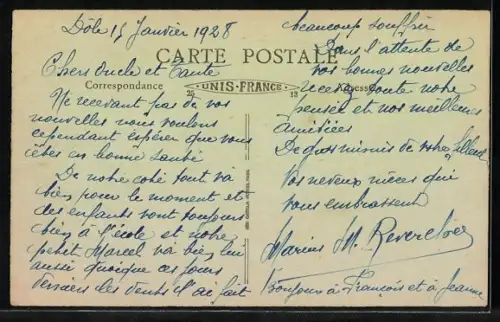 Dôle 15 Janvier 1928
CARTE POSTALE
Correspondance
UNIS-FRANCE
Adresse
Chers Oncle et Tante
Ne recevant pas de vos
nouvelles nous voulons
cependant espérer que vous
êtes en bonne santé
De notre coté tout va
bien pour le moment et
des enfants vont toujours
bien à l'école et notre
petit Marcel va bien lui
aussi quoique ces jours
derniers les dents l'ai fait
beaucoup souffrir
Dans l'attente de
vos bonnes nouvelles
recevez toute notre
pensée et nos meilleures
amitiées
De gros mimis de votre filleul
Vos neveux nièces qui
vous embrassent
Marius M. Reverchon
Bonjour à François et à Jeanne